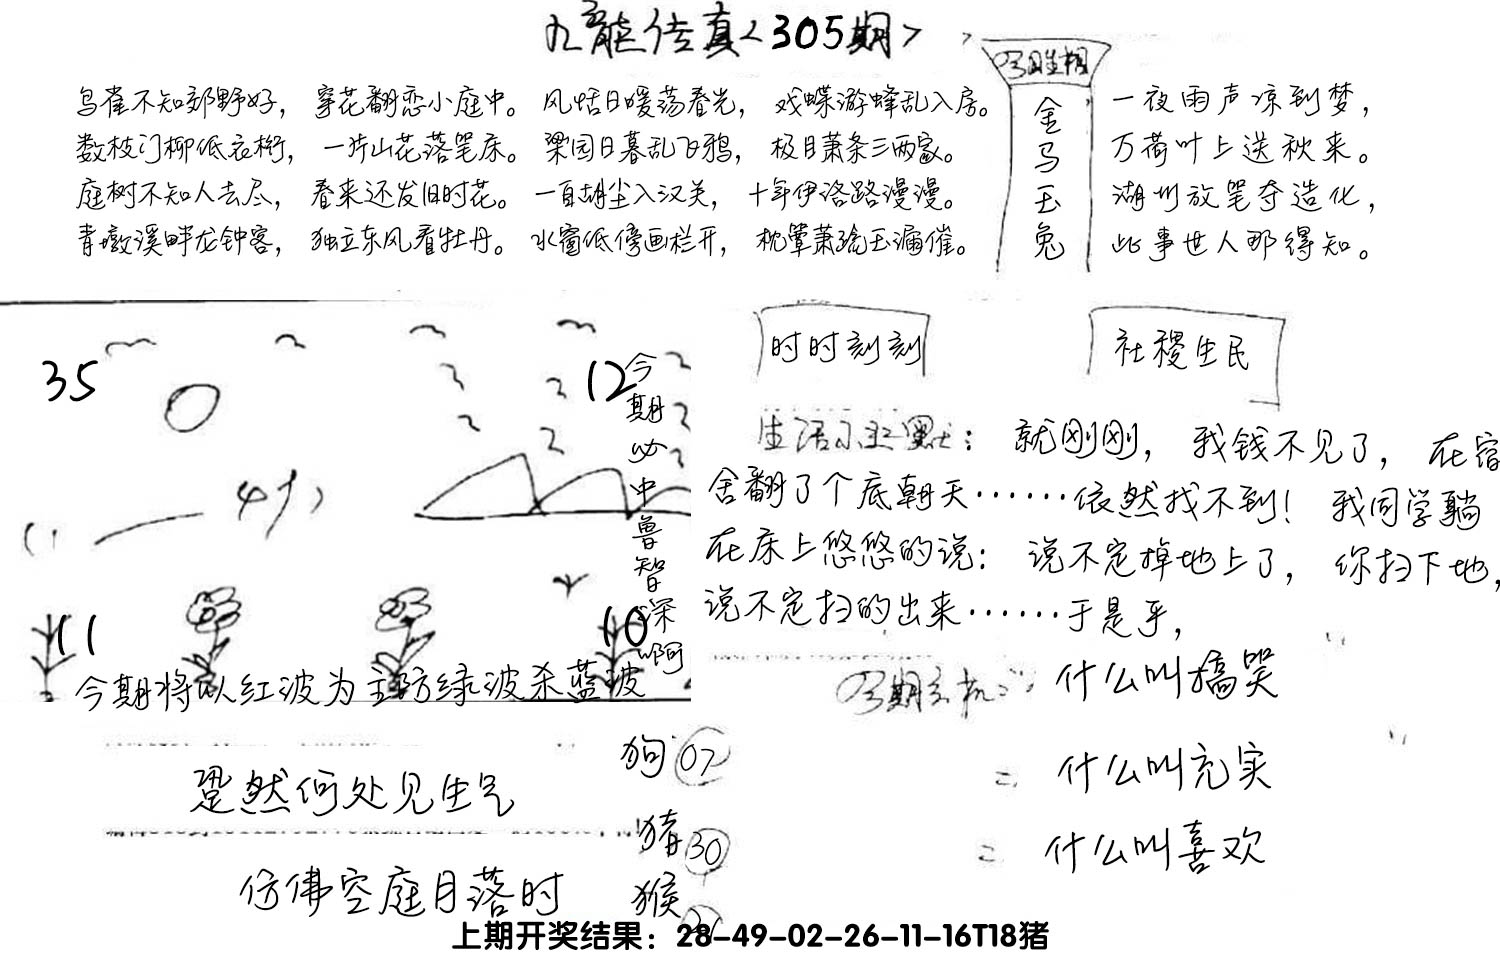 九龙传真<305期>
鸟雀不知郊野好，穿花翻恋小庭中。风恬日暖荡春光，戏蝶游蜂乱入房。
数枝门柳低衣桁，一片山花落笔床。梁园日暮乱飞鸦，极目萧条三两家。
庭树不知人去尽，春来还发旧时花。一自胡尘入汉关，十年伊洛路漫漫。
青墩溪畔龙钟客，独立东风看牡丹。水窗低傍画栏开，枕簟萧疏玉漏催。
金马玉兔
一夜雨声凉到梦，
万荷叶上送秋来。
湖州放笔夺造化，
此事世人那得知。
35
12
今期必中鲁智深啊
11
10
今期将以红波为主防绿波杀蓝波
时时刻刻
社稷生民
就刚刚，我钱不见了，在宿
舍翻了个底朝天……依然找不到！我同学躺
在床上悠悠的说：说不定掉地上了，你扫下地，
说不定扫的出来……于是乎，
什么叫搞笑
什么叫充实
什么叫喜欢
跫然何处见生气
仿佛空庭月落时
狗 07
猪 30
猴
上期开奖结果：28-49-02-26-11-16T18猪